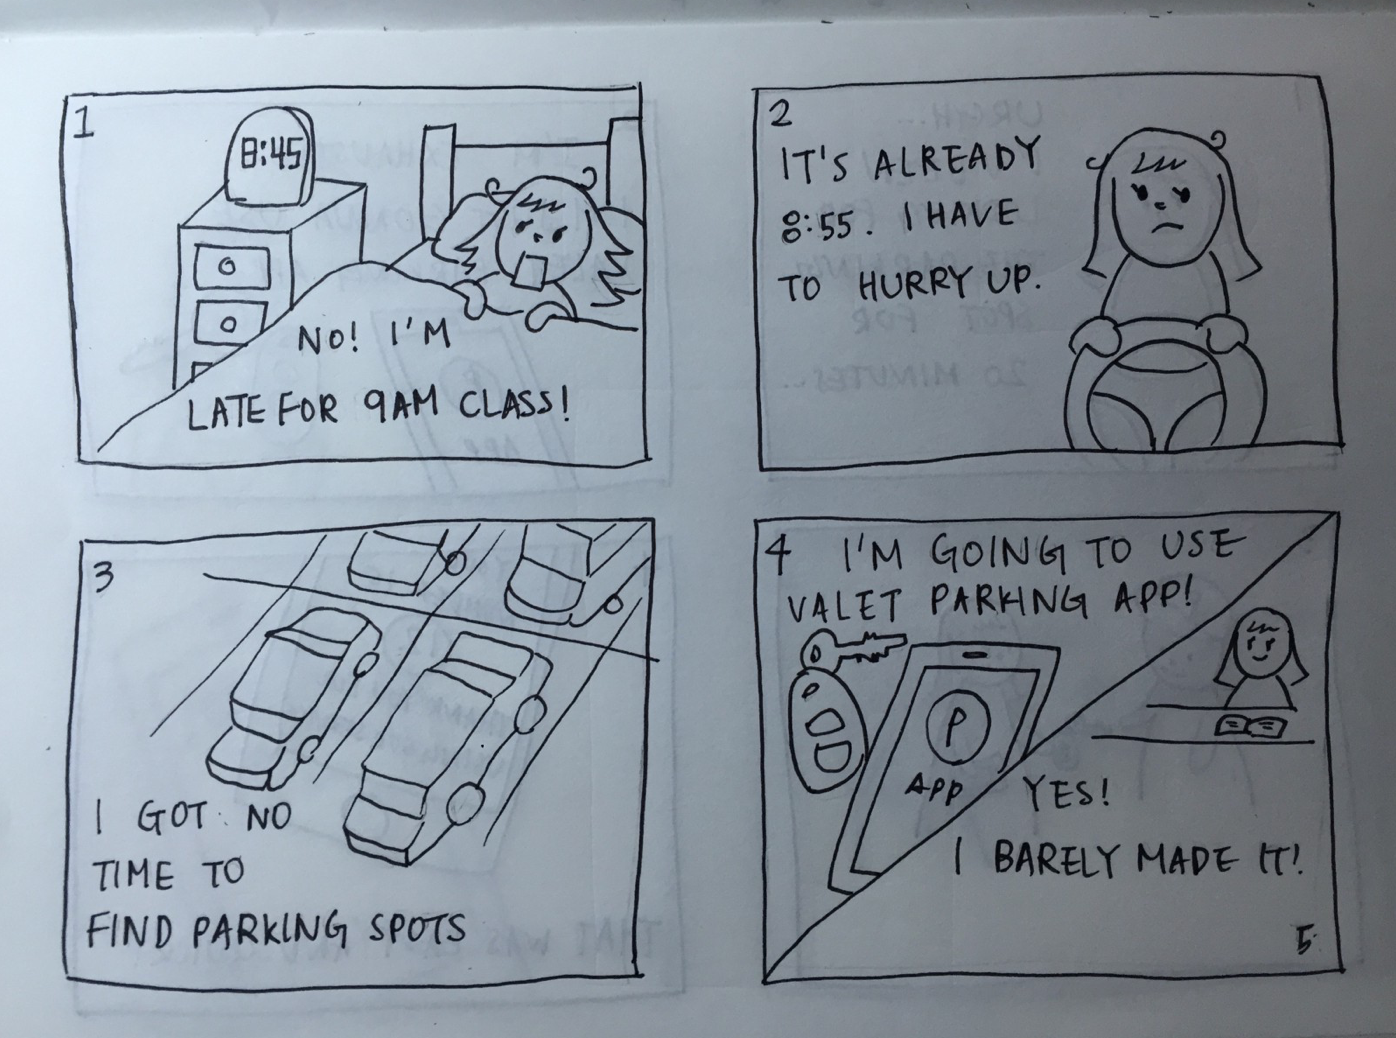 1
8:45
NO! I'M
LATE FOR 9AM CLASS!
2
IT'S ALREADY
8:55. I HAVE
TO HURRY UP.
3
I GOT NO
TIME TO
FIND PARKING SPOTS
4
I'M GOING TO USE
VALET PARKING APP!
P
APP
YES!
I BARELY MADE IT!
5